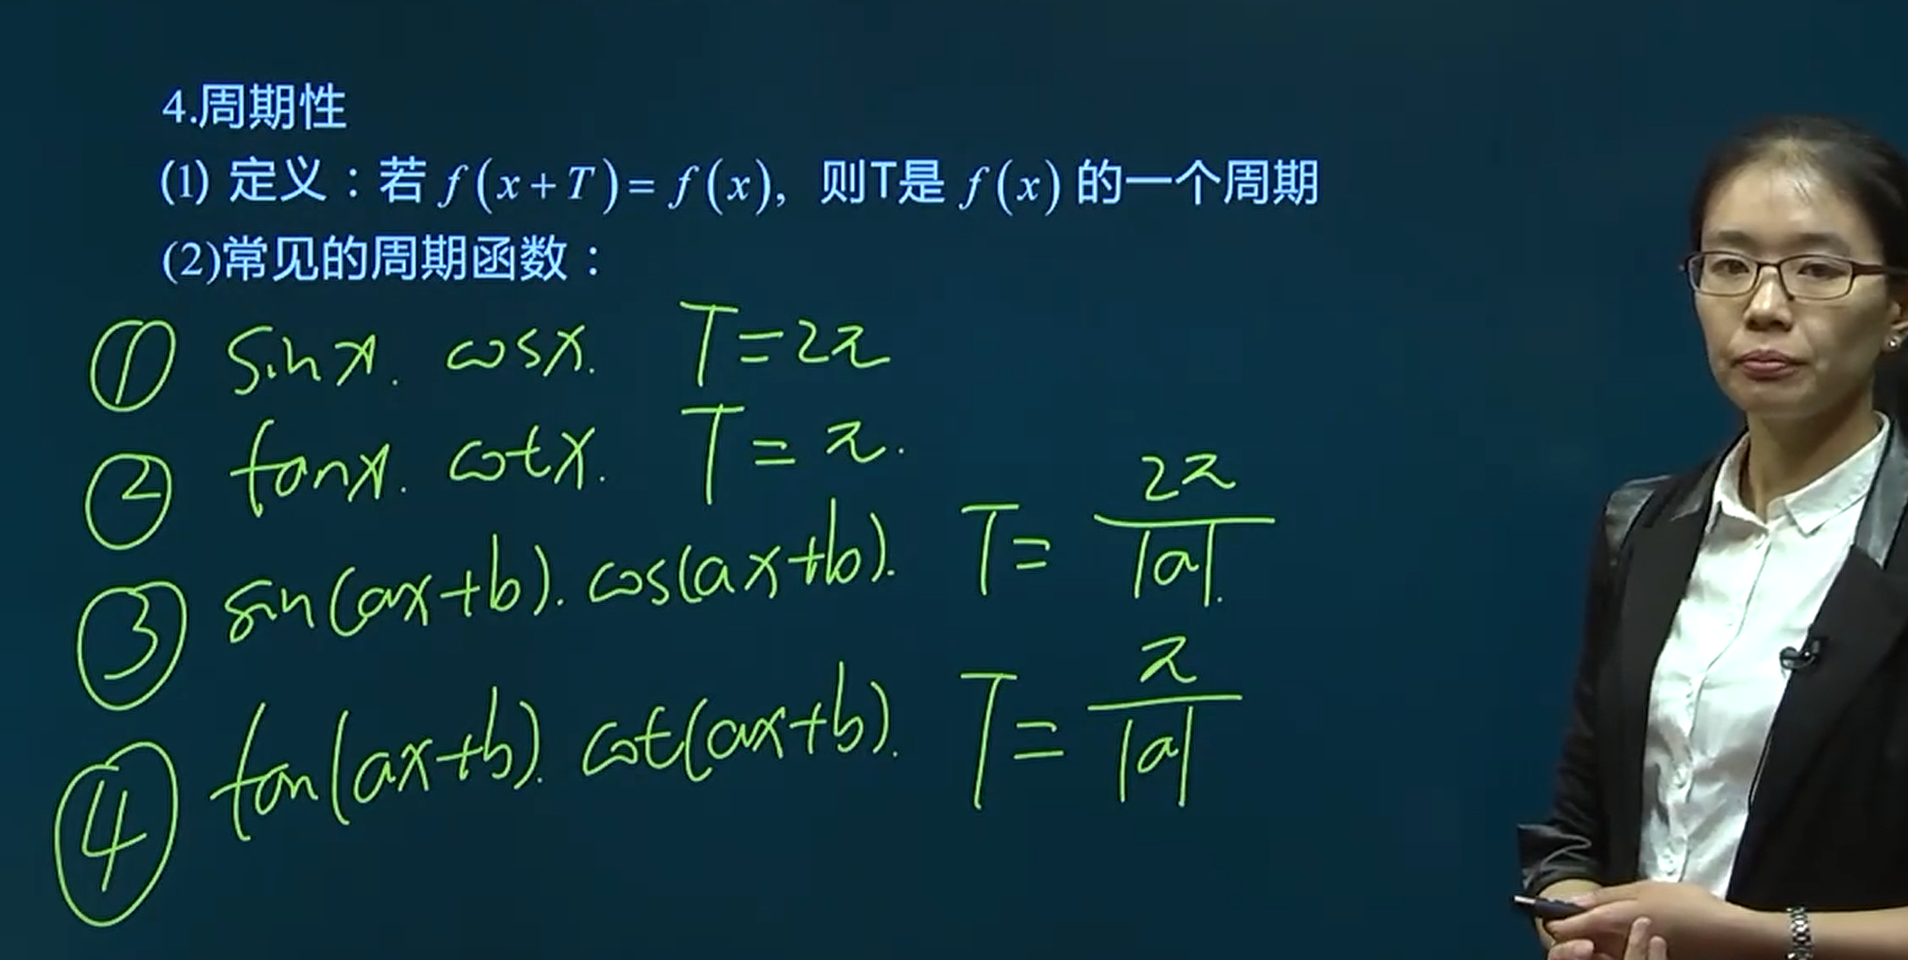 4.周期性
(1) 定义：若 f(x+T)=f(x)，则T是 f(x) 的一个周期
(2)常见的周期函数：
① sinx. cosx. T=2π
② tanx. cotx. T=π.
③ sin(ax+b). cos(ax+b). T=2π/|a|.
④ tan(ax+b). cot(ax+b). T=π/|a|